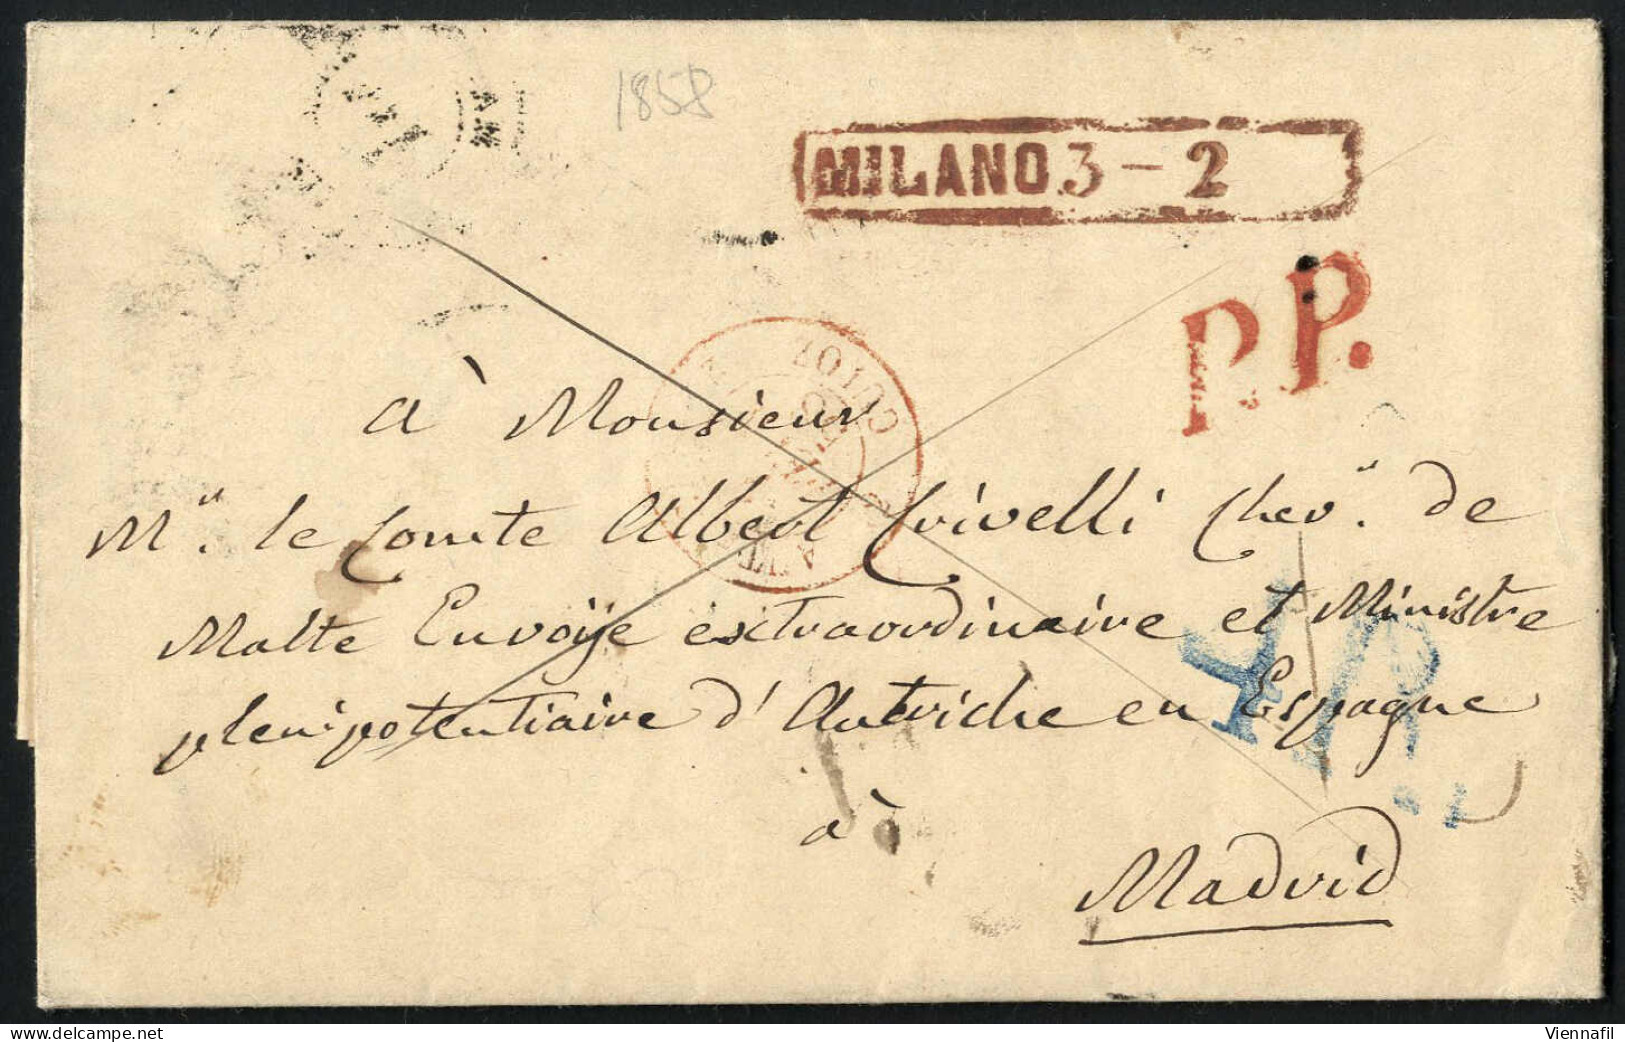 1858
MILANO 3 - 2
P.P.
à Monsieur
Mr. le Comte Albert Crivelli Chevr. de
Malte Envoÿe extraordinaire et Ministre
plenipotentiaire d'Autriche en Espagne
à
Madrid
delcampe.net
Viennafil